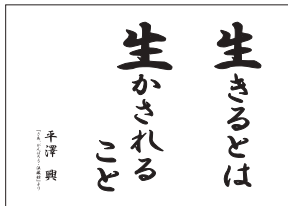 生きるとは
生かされる
こと
平澤 興